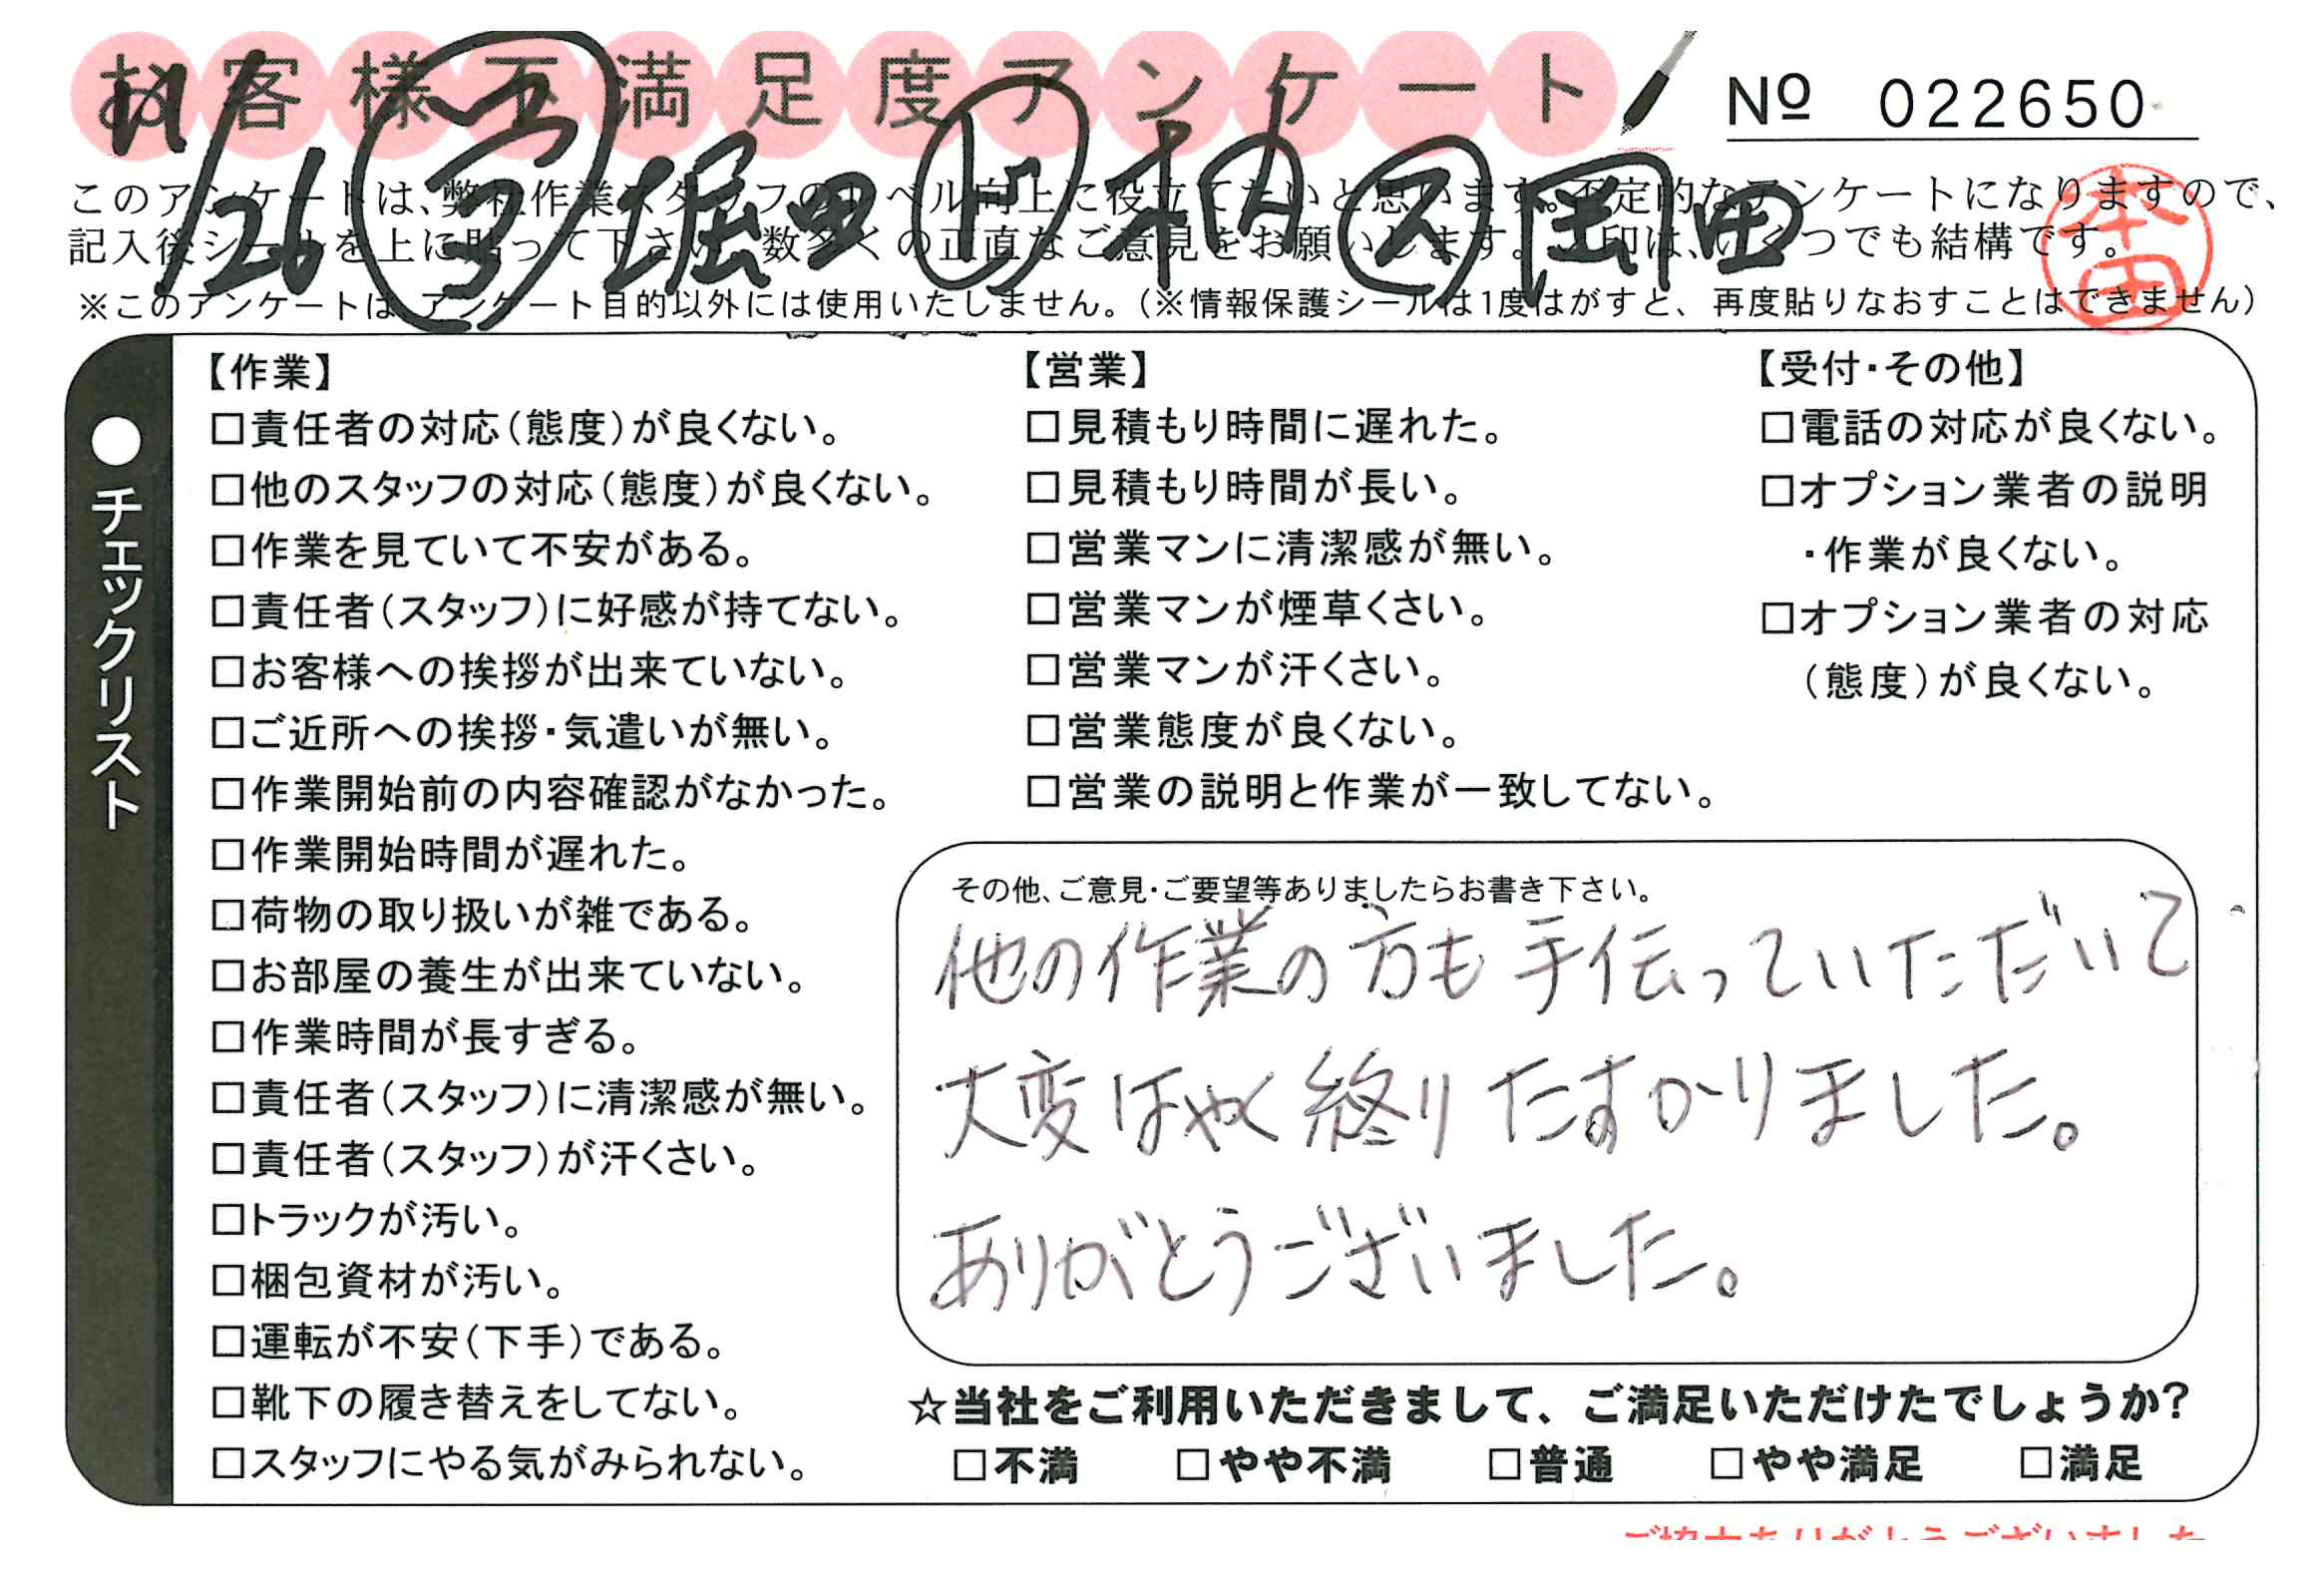 お客様不満足度アンケート
№ 022650
11/26 堀田 柄 ス 岡田
このアンケートは、弊社作業スタッフのレベル向上に役立てたいと思います。否定的なアンケートになりますので、
記入後シールを上に貼って下さい。数多くの正直なご意見をお願いします。レ印は、いくつでも結構です。
本田
※このアンケートは、アンケート目的以外には使用いたしません。(※情報保護シールは1度はがすと、再度貼りなおすことはできません)
●チェックリスト
【作業】
□責任者の対応(態度)が良くない。
□他のスタッフの対応(態度)が良くない。
□作業を見ていて不安がある。
□責任者(スタッフ)に好感が持てない。
□お客様への挨拶が出来ていない。
□ご近所への挨拶・気遣いが無い。
□作業開始前の内容確認がなかった。
□作業開始時間が遅れた。
□荷物の取り扱いが雑である。
□お部屋の養生が出来ていない。
□作業時間が長すぎる。
□責任者(スタッフ)に清潔感が無い。
□責任者(スタッフ)が汗くさい。
□トラックが汚い。
□梱包資材が汚い。
□運転が不安(下手)である。
□靴下の履き替えをしてない。
□スタッフにやる気がみられない。
【営業】
□見積もり時間に遅れた。
□見積もり時間が長い。
□営業マンに清潔感が無い。
□営業マンが煙草くさい。
□営業マンが汗くさい。
□営業態度が良くない。
□営業の説明と作業が一致してない。
【受付・その他】
□電話の対応が良くない。
□オプション業者の説明
・作業が良くない。
□オプション業者の対応
(態度)が良くない。
その他、ご意見・ご要望等ありましたらお書き下さい。
他の作業の方も手伝っていただいて
大変はやく終りたすかりました。
ありがとうございました。
☆当社をご利用いただきまして、ご満足いただけたでしょうか?
□不満 □やや不満 □普通 □やや満足 □満足
ご協力ありがとうございました